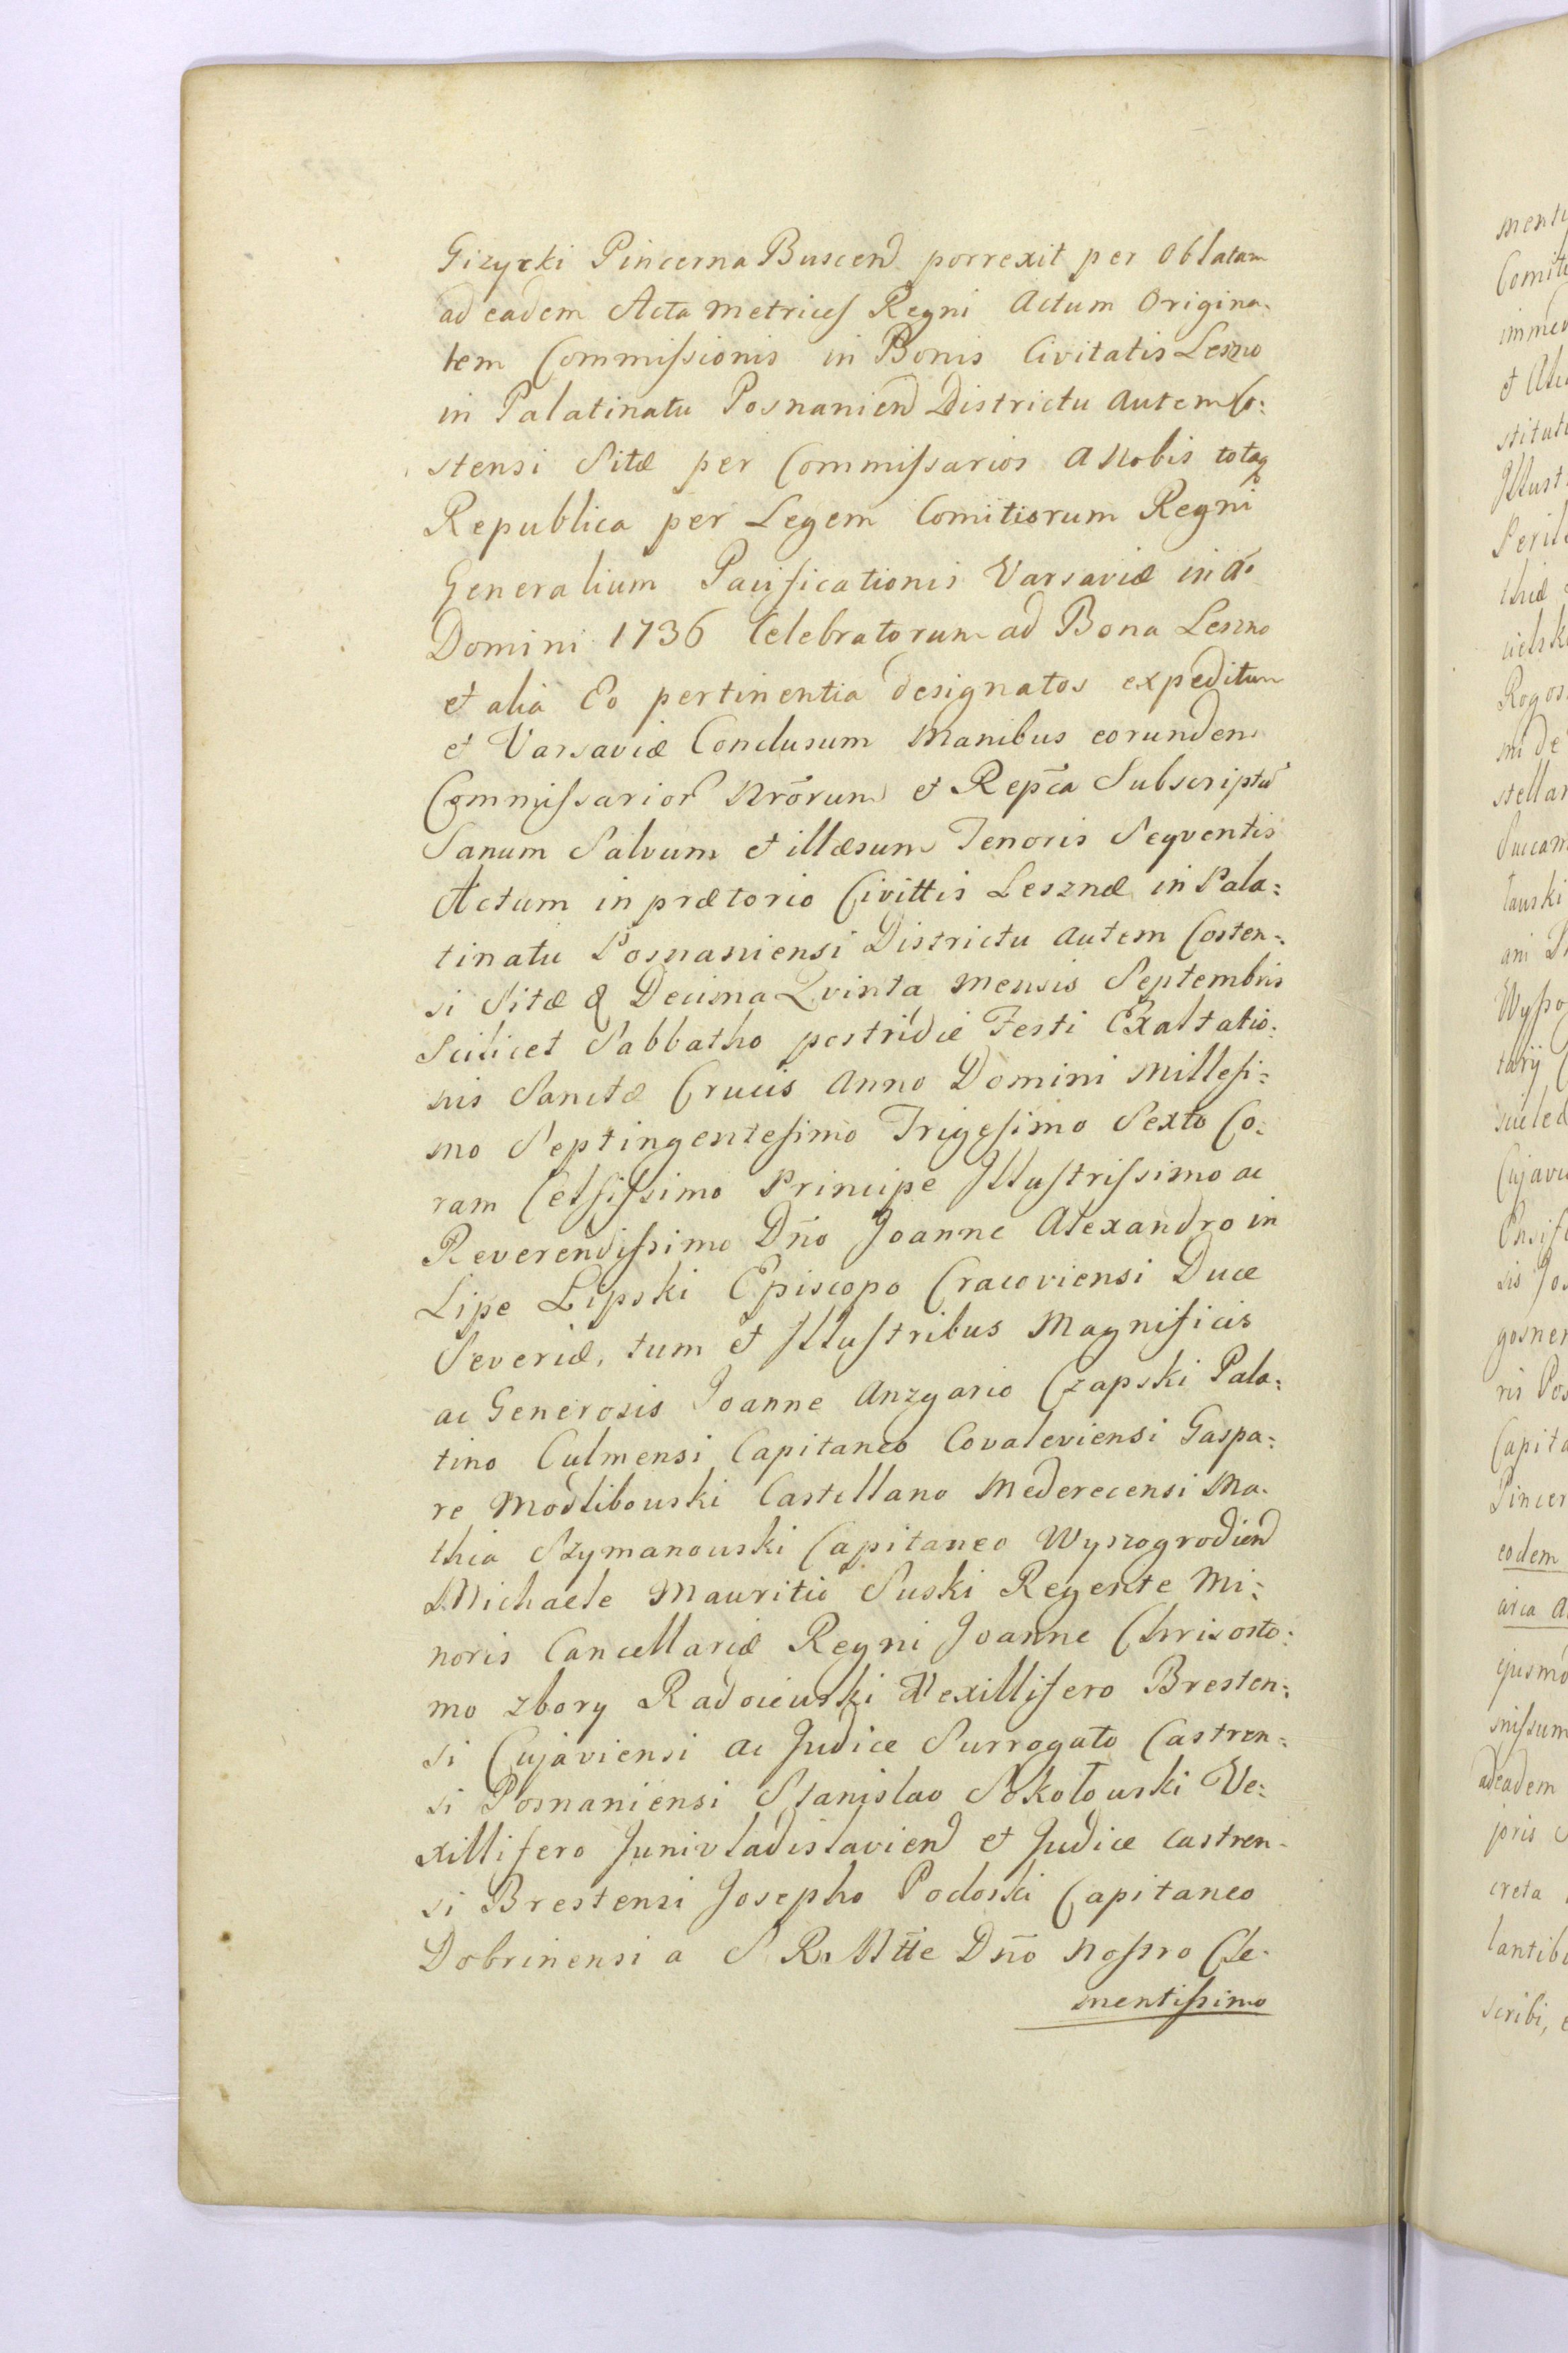 Gizycki Pincerna Buscend porrexit per oblatam
ad eadem Acta Metrices Regni Actum Origina-
lem Commissionis in Bonis Civitatis Leszno
in Palatinatu Posnaniend Districtu autem Co:
stensi Sitæ per Commissarios a Nobis totaq
Republica per Legem Comitiorum Regni
Generalium Pacificationis Varsaviæ in ao
Domini 1736 Celebratorum ad Bona Leszno
et alia Eo pertinentia designatos expeditum
et Varsaviæ Conclusum Manibus eorundem
Commissarior Nrōrum et Repca Subscriptū
Sanum Salvum et illæsum Tenoris Seqventis
Actum in prætorio Civittis Lesznæ in Pala:
tinatu Posnaniensi Districtu autem Costen:
si Sitæ Decima Qvinta mensis Septembris
Scilicet Sabbatho postridie Festi Exaltatio:
nis Sanctæ Crucis Anno Domini Millesi:
mo Septingentesimo Trigesimo Sexto Co:
ram Celsissimo Principe Illustrissimo ac
Reverendissimo Dño Joanne Alexandro in
Lipe Lipski Episcopo Cracoviensi Duce
Severiæ, tum et Illustribus Magnificis
ac Generosis Joanne Anzgario Czapski Pala:
tino Culmensi Capitaneo Covaleviensi Gaspa:
re Modlibowski Castellano Mederecensi Ma-
thia Szymanowski Capitaneo Wyszogrodiend
Michaele Mauritio Suski Regente Mi:
noris Cancellariæ Regni Joanne Chrisosto:
mo zbory Radoiewski Vexillifero Bresten:
si Cujaviensi ac Judice Surrogato Castren:
si Posnaniensi Stanislao Sokołowski Ve:
xillifero Junivladislaviend et Judice Castren-
si Brestensi Josepho Podoski Capitaneo
Dobrinensi a S. R. Mtte Dño Nostro Cle-
mentissimo